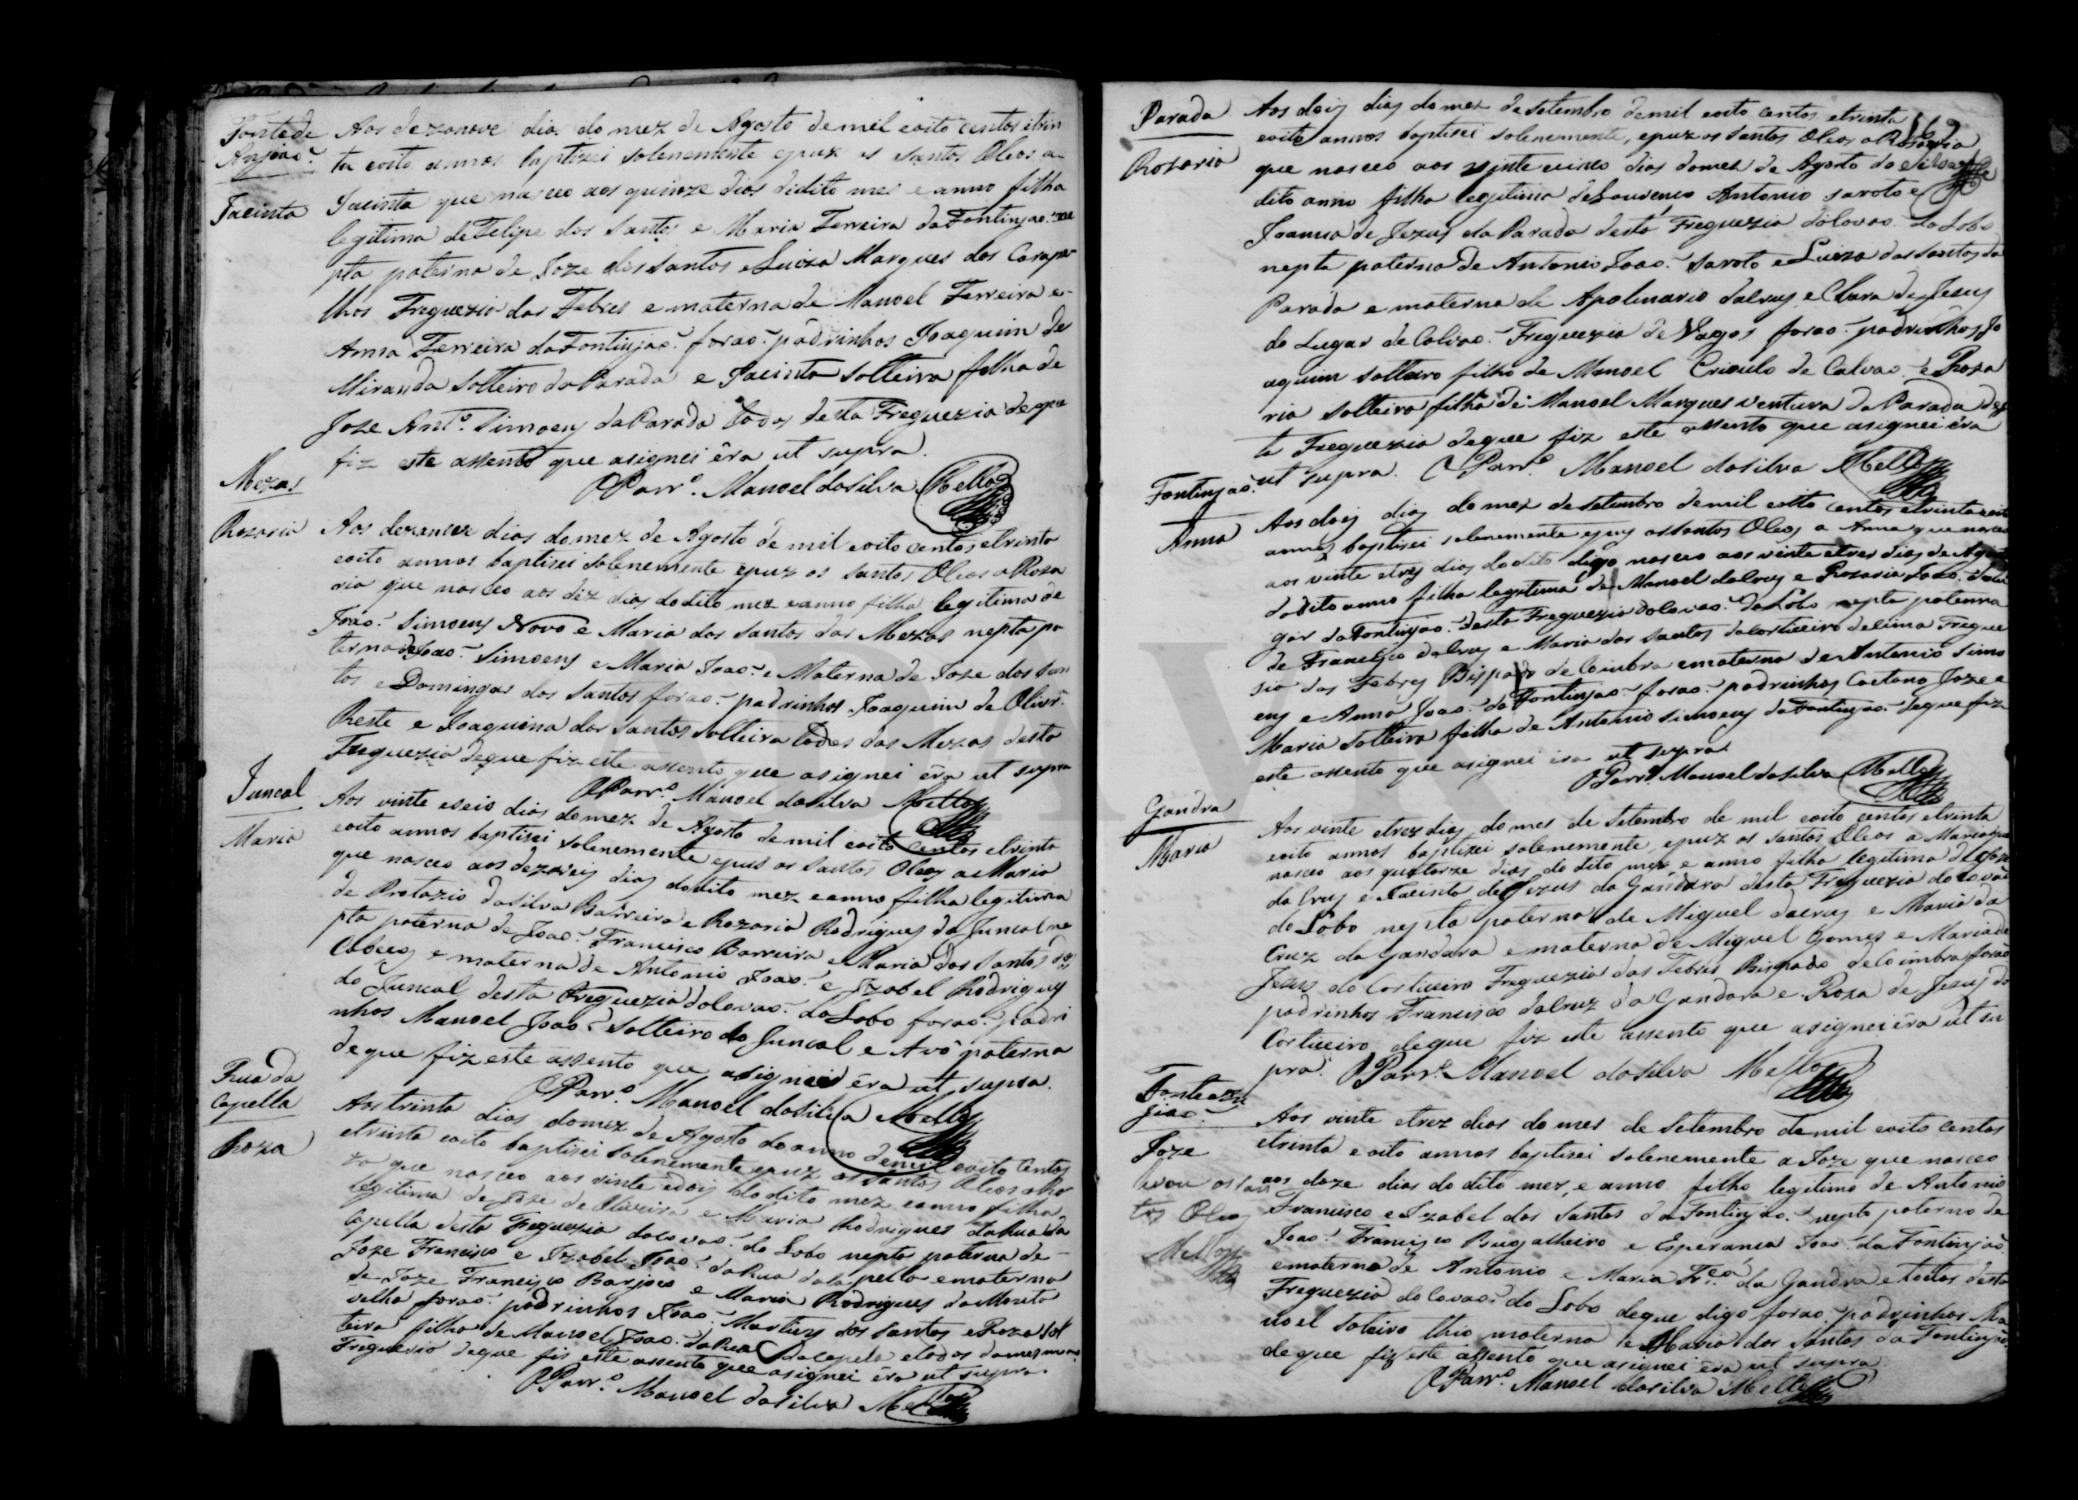 Fonte de
Anjoaõ
Jacinta
Aos dezanove dias do mez de Agosto de mil eoito centos etrin
ta eoito annos baptizei solenemente epuz os santos Oleos a
Jacinta que nasceo aos quinze dias didito mes e anno filha
legitima de Felipe dos Santos e Maria Ferreira da Fontinjaõ ne
pta paterna de Joze dos Santos e Luiza Marques dos Carapi
lhos Freguezia das Febres e materna de Manoel Ferreira e
Anna Ferreira da Fontinjaõ foraõ padrinhos Joaquim de
Miranda Solteiro da Parada e Jacinta Solteira filha de
Joze Antº Simoens da Parada todos desta Freguezia de que
fiz este assento que asignei êra ut supra.
O Parrº Manoel da Silva Mello
Mezas
Rozaria
Aos dezanove dias do mez de Agosto de mil eoito centos etrinta
eoito annos baptizei solenemente epuz os santos Oleos a Roza
ria que nasceo aos dez dias do dito mez eanno filha legitima de
Joaõ Simoens Novo e Maria dos Santos das Mezas nepta pa
terna de Joaõ Simoens e Maria Joaõ e Materna de Joze dos San
tos e Domingas dos Santos foraõ padrinhos Joaquim de Olivrª
Reste e Joaquina dos Santos solteira todos das Mezas desta
Freguezia deque fiz este assento que asignei êra ut supra
O Parrº Manoel da Silva Mello
Juncal
Maria
Aos vinte eseis dias do mez de Agosto de mil eoito centos etrinta
eoito annos baptizei solenemente epus os santos Oleos a Maria
que nasceo aos dezaseis dias do dito mez eanno filha legitima
de Protazio da Silva Barreira e Rozaria Rodrigues do Juncal ne
pta paterna de Joaõ Francisco Barreira e Maria dos Santos dos
Cabecos e materna de Antonio Joaõ e Izabel Rodrigues
do Juncal desta Freguezia do Covaõ do Lobo foraõ padri
nhos Manoel Joaõ Solteiro do Juncal e Avó paterna
deque fiz este assento que asignei êra ut supra.
O Parrº Manoel da Silva Mello
Rua da
Capella
Roza
Aos trinta dias do mez de Agosto do anno demil eoito centos
etrinta eoito baptizei solenemente epuz os santos Oleos a Ro
za que nasceo aos vinte edois do dito mez eanno filha
legitima de Joze de Oliveira e Maria Rodrigues da Rua da
Capella desta Freguezia do Covaõ do Lobo nepta paterna de
Joze Francisco e Izabel Joaõ da Rua da Capella e materna
de Joze Francisco Barjoco e Maria Rodrigues da Moreta
velha foraõ padrinhos Joaõ Martins dos Santos e Roza Sol
teira filha de Manoel Joaõ da Rua da Capela e todos da mesma
Freguezia deque fis este assento que asignei êra ut supra.
O Parrº Manoel da Silva Mello
Parada
Rozaria
Aos dois dias do mez de Setembro de mil eoito centos etrinta
eoito annos baptizei solenemente, epuz os santos Oleos a Rozaria
que nasceo aos vinte ecinco dias do mez de Agosto do
dito anno filha legitima de Lourenco Antonio saroto e
Joanna de Jezus da Parada desta Freguezia do Covaõ do Lobo
nepta paterna de Antonio Joaõ Saroto e Luiza dos Santos da
Parada e materna de Apolinario da Cruz e Clara de Jesus
do Lugar de Calvaõ Freguezia de Vagos foraõ padrinhos Jo
aquim solteiro filho de Manoel Crioulo de Calvaõ e Roza
ria solteira filha de Manoel Marques ventura da Parada des
ta Freguezia deque fiz este assento que asignei êra
ut supra. O Parrº Manoel da Silva Mello
Fontinjaõ
Anna
Aos dois dias do mez de Setembro de mil eoito centos etrinta eoito
annos baptizei solenemente epuz os santos Oleos a Anna que nasceo
aos vinte etres dias do dito digo nasceo aos vinte etres dias de Agosto
do dito anno filha legitima de Manoel da Cruz e Rozaria Joaõ do lu
gar da Fontinjaõ desta Freguezia do Covaõ do Lobo nepta paterna
de Francisco da Cruz e Maria dos Santos do Corticeiro de Cima Fregue
zia das Febres Bispado de Coimbra e materna de Antonio Simo
ens e Anna Joaõ da Fontinjaõ foraõ padrinhos Caetano Joze e
Maria solteira filha de Antonio Simoens da Fontinjaõ deque fiz
este assento que asignei êra ut supra.
O Parrº Manoel da Silva Mello
Gandra
Maria
Aos vinte etrez dias do mes de Setembro de mil eoito centos etrinta
eoito annos baptizei solenemente, epuz os santos Oleos a Maria que
nasceo aos quatorze dias do dito mez e anno filha legitima de Joze
da Cruz e Jacinta de Jezus da Gandara desta Freguezia do Covaõ
do Lobo nepta paterna de Miguel da Cruz e Maria da
Cruz da Gandara e materna de Miguel Gomes e Maria de
Jesus do Corticeiro Freguezia das Febres Bispado de Coimbra foraõ
padrinhos Francisco da Cruz da Gandara e Roza de Jesus do
Corticeiro deque fiz este assento que asignei êra ut su
pra. O Parrº Manoel da Silva Mello
Fonte de An
jiaõ
Joze
levou os san
tos Oleos
Mello
Aos vinte etrez dias do mes de Setembro de mil eoito centos
etrinta e oito annos baptizei solenemente a Joze que nasceo
aos doze dias do dito mez, e anno filho legitimo de Antonio
Francisco e Izabel dos Santos da Fontinjaõ nepto paterno de
Joaõ Francisco Bugalheiro e Esperanca Joaõ da Fontinjaõ
ematerno de Antonio e Maria Frcª da Gandra e todos desta
Freguezia do Covaõ do Lobo deque digo foraõ padrinhos Ma
noel Soteiro thio materno e Maria dos Santos da Fontinjaõ
de que fiz este assento que asignei êra ut supra
O Parrº Manoel da Silva Mello